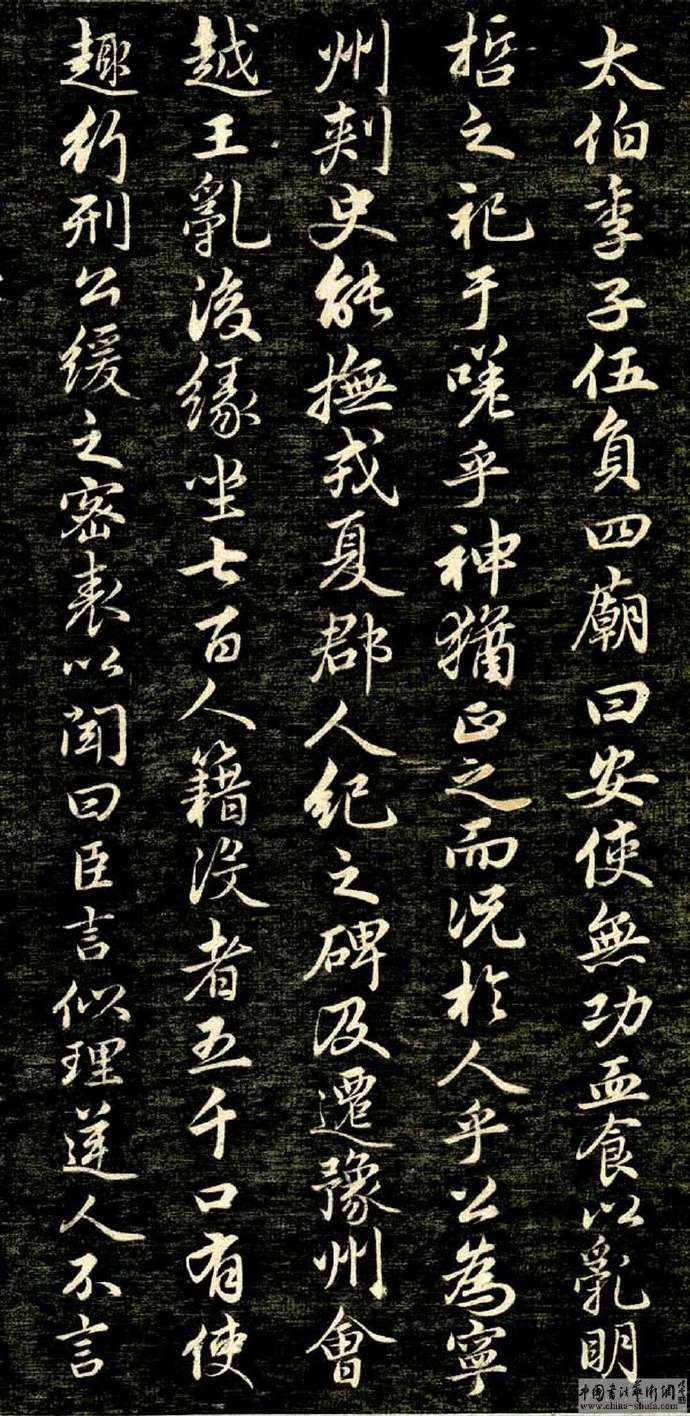 太伯季子伍員四廟曰安使無功血食以亂明
哲之祀于嗟乎神猶正之而況於人乎公為寧
州刺史能撫戎夏郡人紀之碑及遷豫州會
越王亂後緣坐七百人籍沒者五千口有使
趣行刑公緩之密表以聞曰臣言似理逆人不言
中国书法艺术网
www.china-shufa.com